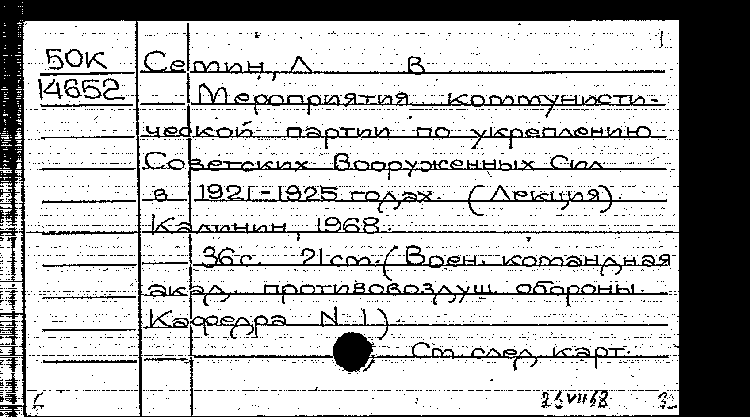 1
50К Семин, Л В
14652 Мероприятия коммунисти-
ческой партии по укреплению
Советских Вооруженных Сил
в 1921-1925 годах. (Лекция).
Калинин, 1968.
36 с. 21 cm. (Воен. командная
акад. противовоздуш. обороны.
Кафедра N 1)
См. след. карт.